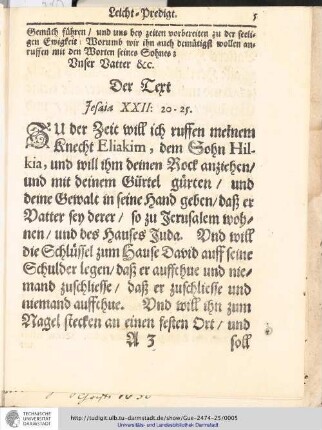 Leicht-Predigt. 5
Gemüch führen / und uns bey zeiten vorbereiten zu der seeli-
gen Ewigkeit: Worumb wir ihn auch demütigst wollen an-
ruffen mit den Worten seines Sohnes:
Unser Vatter &c.
Der Text
Jesaia XXII: 20-25.
ZU der Zeit will ich ruffen meinem
Knecht Eliakim, dem Sohn Hil-
kia, und will ihm deinen Rock anziehen/
und mit deinem Gürtel gürten / und
deine Gewalt in seine Hand geben/ daß er
Vatter sey derer / so zu Jerusalem woh-
nen / und des Hauses Juda. Und will
die Schlüssel zum Hause David auff seine
Schulder legen/ daß er auffthue und nie-
mand zuschliesse / daß er zuschliesse und
niemand auffthue. Und will ihn zum
Nagel stecken an einen festen Ort / und
A 3 soll
TECHNISCHE
UNIVERSITÄT
DARMSTADT
http://tudigit.ulb.tu-darmstadt.de/show/Gue-2474-25/0005
Universitäts- und Landesbibliothek Darmstadt